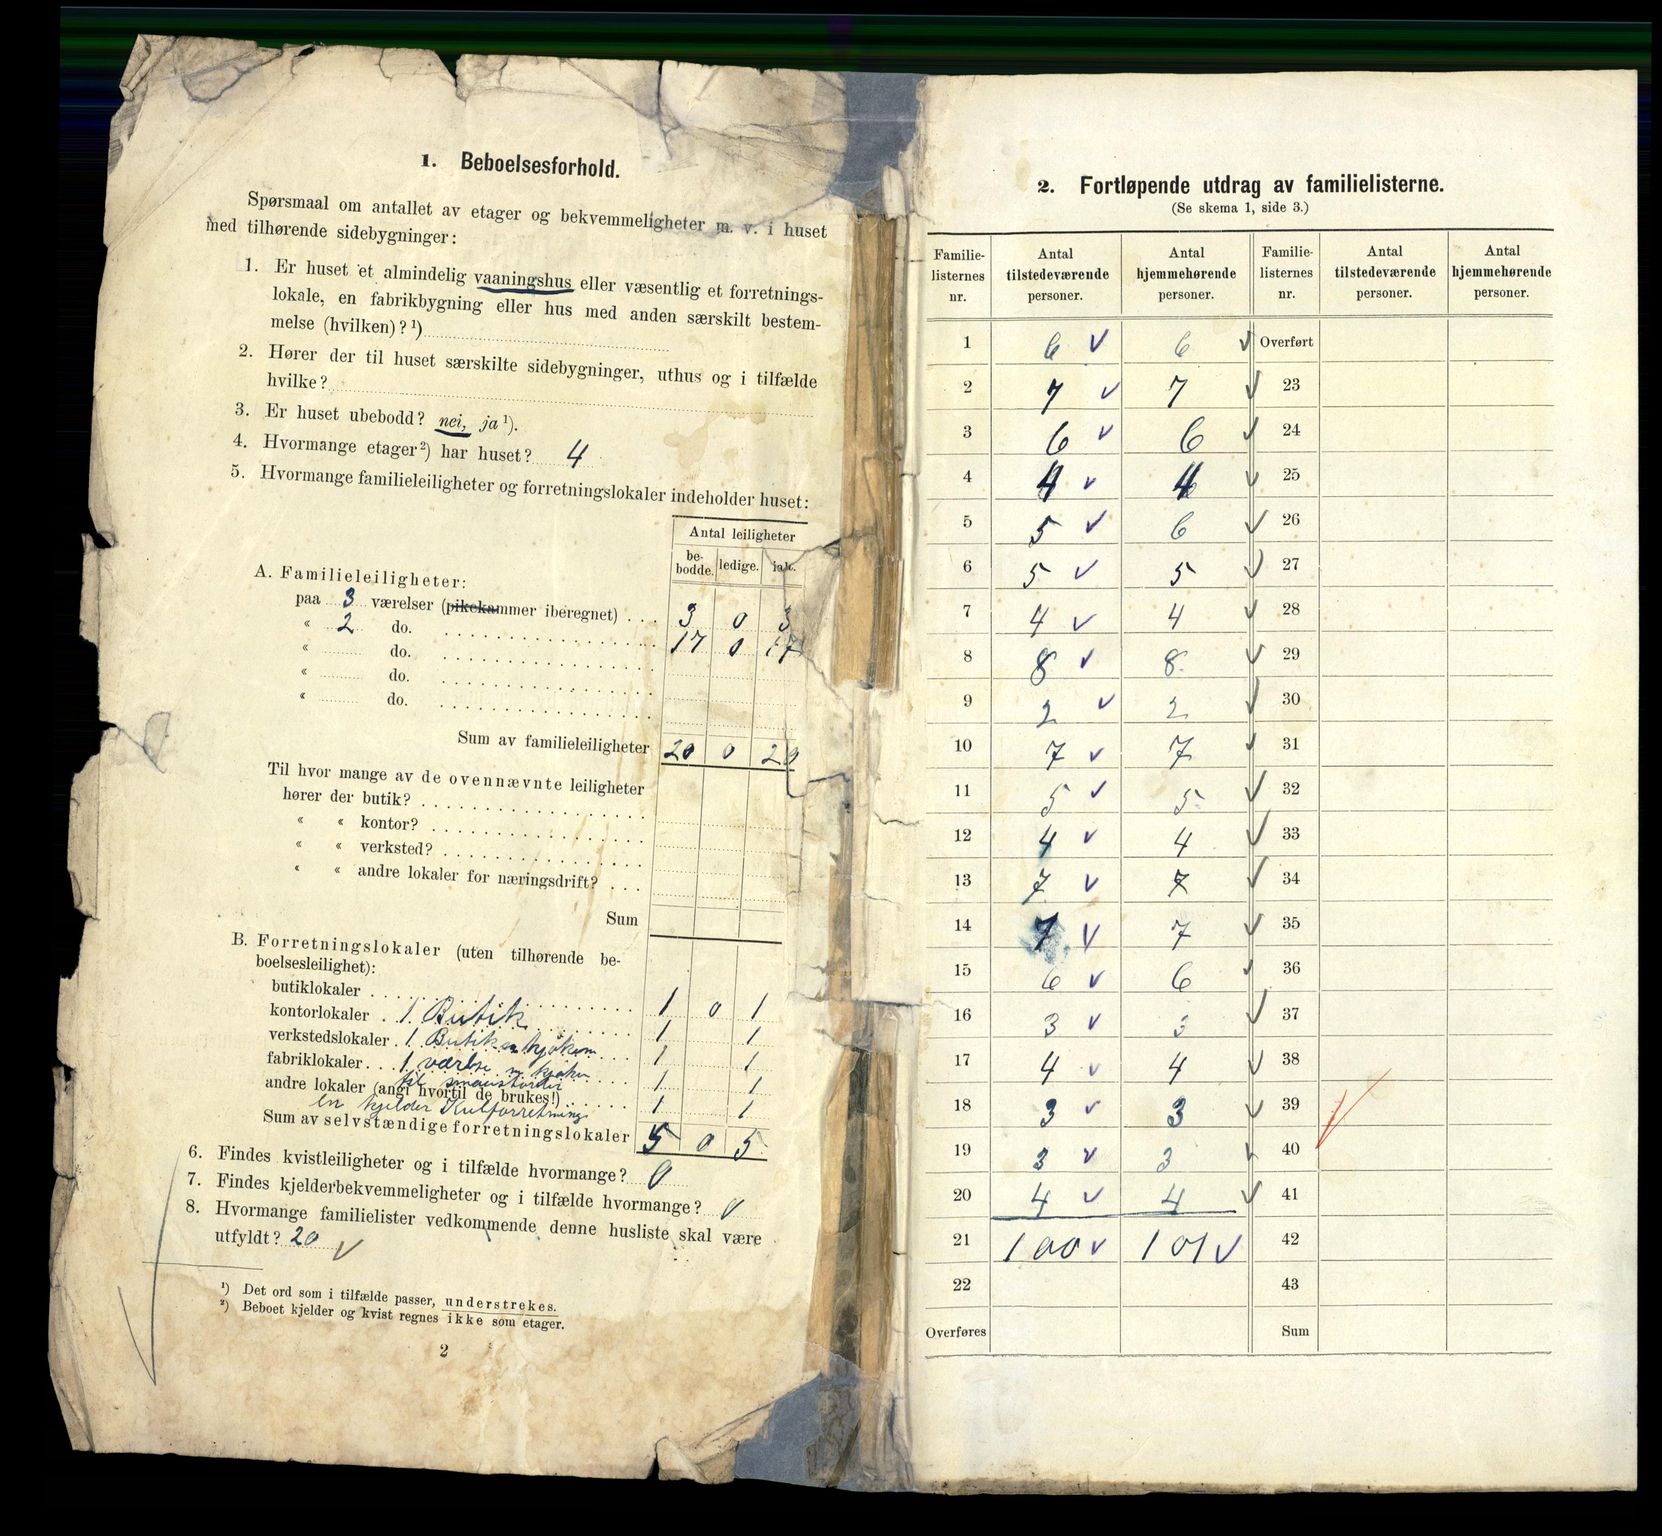 1. Beboelsesforhold.
Spørsmaal om antallet av etager og bekvemmeligheter m. v. i huset
med tilhørende sidebygninger:
1. Er huset et almindelig vaaningshus eller væsentlig et forretnings-
lokale, en fabrikbygning eller hus med anden særskilt bestem-
melse (hvilken)? ¹)
2. Hører der til huset særskilte sidebygninger, uthus og i tilfælde
hvilke?
3. Er huset ubebodd? nei, ja ¹).
4. Hvormange etager ²) har huset? 4
5. Hvormange familieleiligheter og forretningslokaler indeholder huset:
Antal leiligheter
be-
bodde. ledige. ialt.
A. Familieleiligheter:
paa 3 værelser (pikekammer iberegnet) . . . 3 0 3
« 2 do. 17 0 17
« do.
« do.
« do.
Sum av familieleiligheter 20 0 20
Til hvor mange av de ovennævnte leiligheter
hører der butik?
« « kontor?
« « verksted?
« « andre lokaler for næringsdrift? . . .
Sum
B. Forretningslokaler (uten tilhørende be-
boelsesleilighet):
butiklokaler 1 0 1
kontorlokaler . 1 Butik 1 1
verkstedslokaler . 1 Butik m kjøken 1 1
fabriklokaler . . . 1 værelse m kjøken 1 1
til
andre lokaler (angi hvortil de brukes!) 1 1
en kjelder Kulforretning
Sum av selvstændige forretningslokaler 5 0 5
6. Findes kvistleiligheter og i tilfælde hvormange? 0
7. Findes kjelderbekvemmeligheter og i tilfælde hvormange? 0
8. Hvormange familielister vedkommende denne husliste skal være
utfyldt? 20
¹) Det ord som i tilfælde passer, understrekes.
²) Beboet kjelder og kvist regnes ikke som etager.
2
2. Fortløpende utdrag av familielisterne.
(Se skema 1, side 3.)
Familie-
listernes
nr. Antal
tilstedeværende
personer. Antal
hjemmehørende
personer. Familie-
listernes
nr. Antal
tilstedeværende
personer. Antal
hjemmehørende
personer.
1 6 6 Overført
2 7 7 23
3 6 6 24
4 4 4 25
5 5 6 26
6 5 5 27
7 4 4 28
8 8 8 29
9 2 2 30
10 7 7 31
11 5 5 32
12 4 4 33
13 7 7 34
14 7 7 35
15 6 6 36
16 3 3 37
17 4 4 38
18 3 3 39
19 3 3 40
20 4 4 41
21 100 101 42
22 43
Overføres Sum